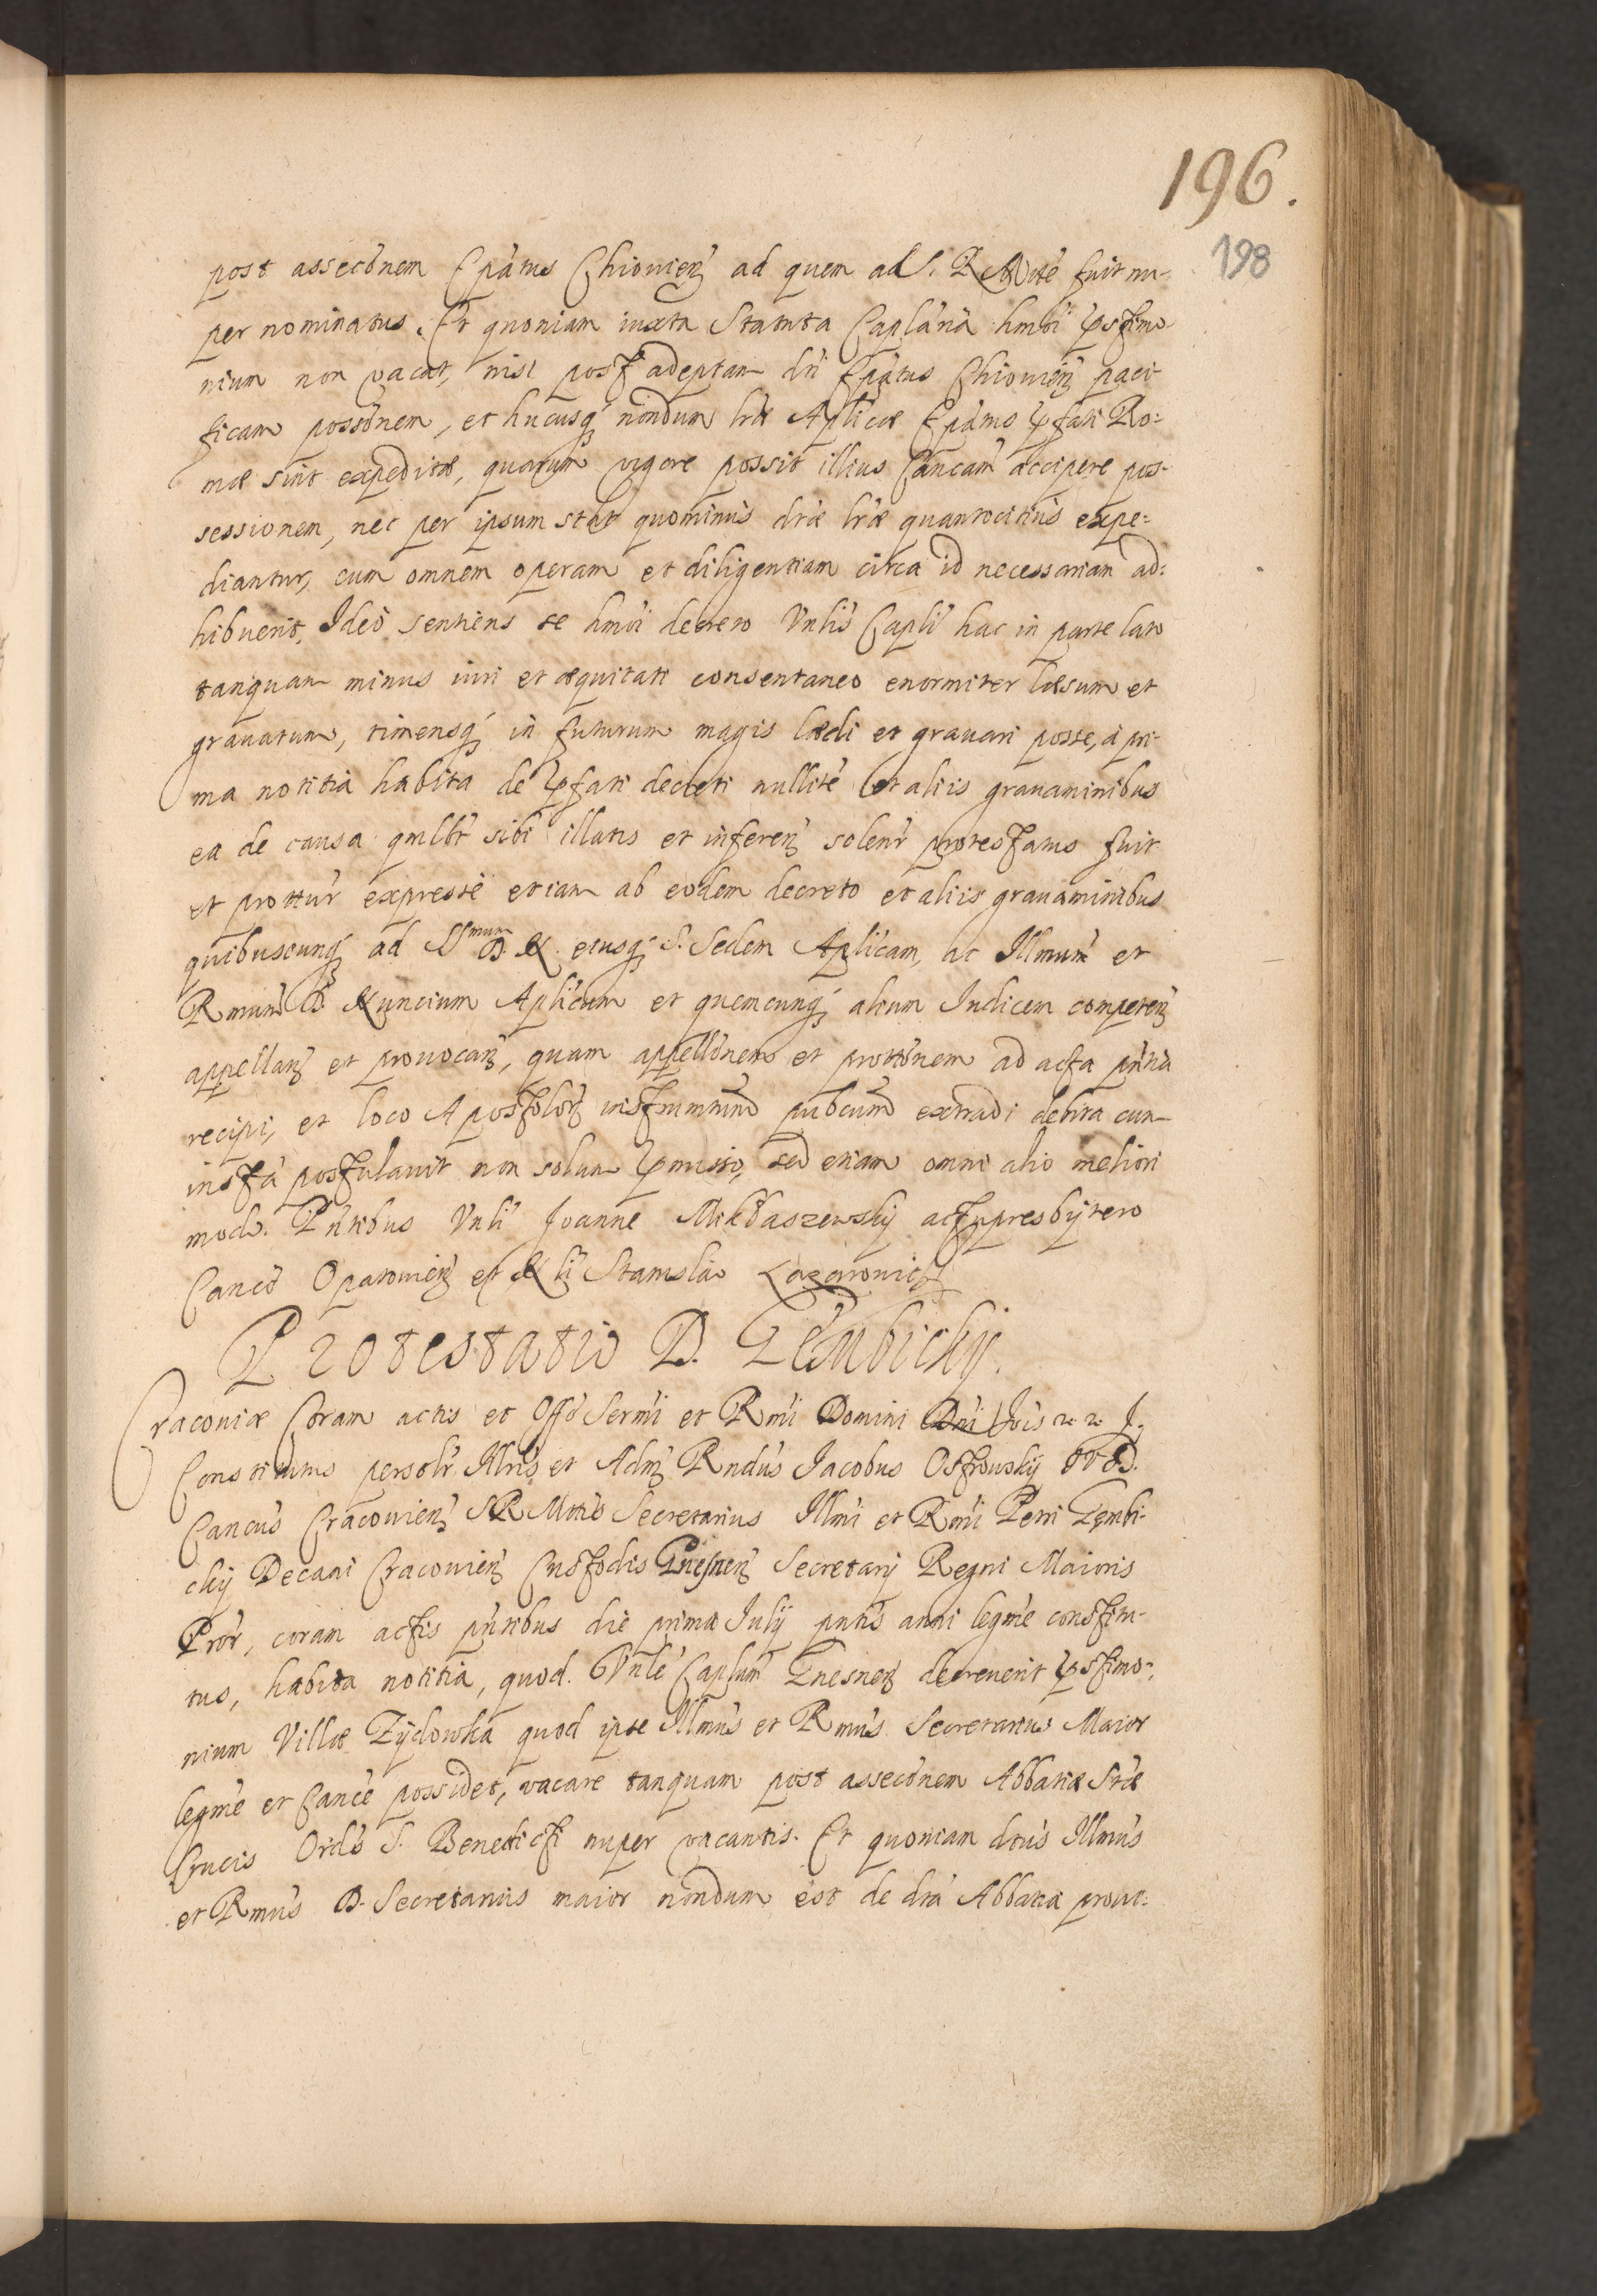 196.
198
post assecõnem Epãtus Chiouień ad quem ad S. R. Mtẽ fuit nu-
per nominatus. Et quoniam iuxta Statuta Caplãria hmõi pstimo-
nium non vacat, nisi post adeptam dti Epãtus Chiouień paci-
ficam possõnem, et hucusq́ nondum lræ Aplicæ Epãtus pfati Ro-
mæ sint expeditæ, quarum vigore possit illius Cancam̃ accipere pos-
sessionem, nec per ipsum stat quominus dtæ lræ quantocitius expe-
diantur, cum omnem operam et diligentiam circa id necessariam ad-
hibuerit. Ideo sentiens se hmõi decreto Vnlis Capli hac in parte lato
tanquam minus iuri et æquitati consentaneo enormiter læsum et
grauatum, timensq́ in futurum magis lædi et grauari posse, à pri-
ma notitia habita de pfati decreti nullitẽ et aliis grauaminibus
ea de causa qmlbt sibi illatis et inferen̄ solenr̃ protestatus fuit
et prottur̃ expresse etiam ab eodem decreto et aliis grauaminibus
quibuscunq́ ad Smum D. N. eiusq́ S. Sedem Aplicam, ac Illmum̃ et
Rmum̃ D. Nuncium Aplicum et quemcunq́ alium Iudicem competen̄
appellan̄ et prouocan̄, quam appellõnem et prottõnem ad acta pñtia
recipi, et loco Apostolor̃ instrumtum̃ pubcum̃ extradi debita cum
instã postulauit non solum pmisso, sed etiam omni alio meliori
modo. Pñtibus Vnli Joanne Mikołaszewsky actupresbytero
Cancõ Opatouień et Nli Stanislao Lazarowicz
Protestatio D. Gembicky.
Cracoviæ Coram actis et Offo Sermi et Rmi Domini Dñi Jois &c. &c. J.
Constitutus persolr̃ Illris et Adm̃ Rndus Jacobus Ostrowsky JVD.
Cancus Cracouień SRMttis Secretarius Illmi et Rmi Petri Gembi-
cky Decani Cracouień Custodis Gnesnen̄ Secretarij Regni Maioris
Pror̃, coram actis pñtibus die prima Julij pntis anni legme constitu-
tus, habita notitia, quod Vnle Caplum Gnesnen̄ decreuerit pstimo-
nium Villæ Zydowka quod ipse Illmus et Rmus Secretarius Maior
legme et Cance possidet, vacare tanquam post assecõnem Abbatiæ Stæ
Crucis Ordis S. Benedicti nuper vacantis. Et quoniam dtus Illmus
et Rmus D. Secretarius maior nondum est de dta Abbatia proui-